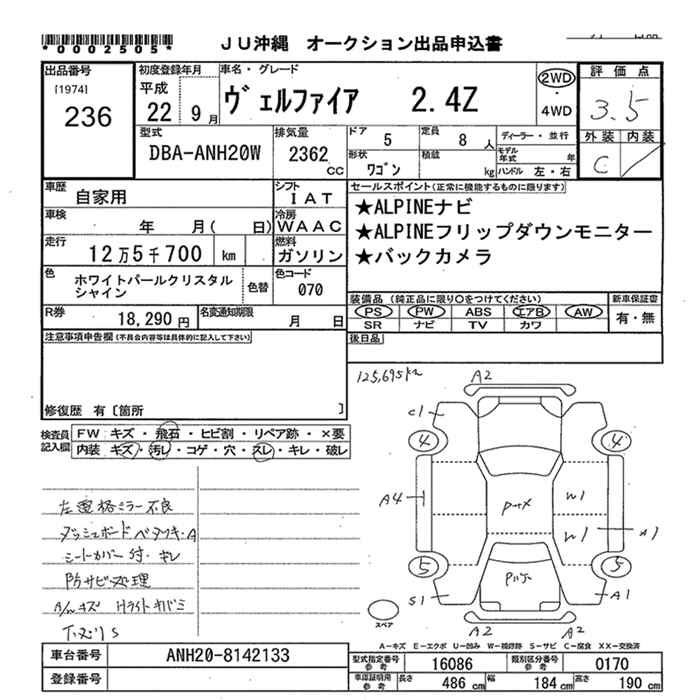 *0002505*
JU沖縄 オークション出品申込書
出品番号
[1974]
236
初度登録年月
平成
22 9月
車名・グレード
ヴェルファイア 2.4Z
2WD
・
4WD
評価点
3.5
外装 内装
C
型式
DBA-ANH20W
排気量
2362
CC
ドア
5
定員
8人
形状
ワゴン
積載
kg
ディーラー・並行
モデル年式 年
ハンドル 左・右
車歴
自家用
シフト
IAT
車検
年 月( 日)
冷房
WAAC
走行
12万5千700 km
燃料
ガソリン
色
ホワイトパールクリスタル
シャイン
色替
色コード
070
R券
18,290円
名変通知期限
月 日
セールスポイント(正常に機能するものに限ります)
★ALPINEナビ
★ALPINEフリップダウンモニター
★バックカメラ
装備品 (純正品に限り○をつけてください)
PS PW ABS エアB AW
SR ナビ TV カワ
新車保証書
有・無
注意事項申告欄(不具合内容等は具体的に記入して下さい)
後日品
修復歴 有 [箇所 ]
検査員
記入欄
FW キズ・飛石・ヒビ割・リペア跡・×要
内装 キズ・汚レ・コゲ・穴・スレ・キレ・破レ
125,695km
A2
C1
4
4
A4
W1
W1
A1
5
5
S1
A1
A2
A2
スペア
ダッシュボードベタツキ・A
シートカバー付・キレ
防サビ処理
A/wキズ Hライトキバミ
A-キズ E-エクボ U-凹み W-補修跡 S-サビ C-腐食 XX-交換済
車台番号
ANH20-8142133
登録番号
型式指定番号
参考
16086
類別区分番号
参考
0170
車庫証明用
参考
長さ 486cm 幅 184cm 高さ 190cm